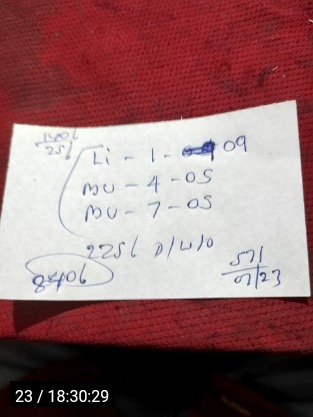 Li - 1 - 09
MU - 4 - 05
MU - 7 - 05
2256
8406
571
07/23
23 / 18:30:29